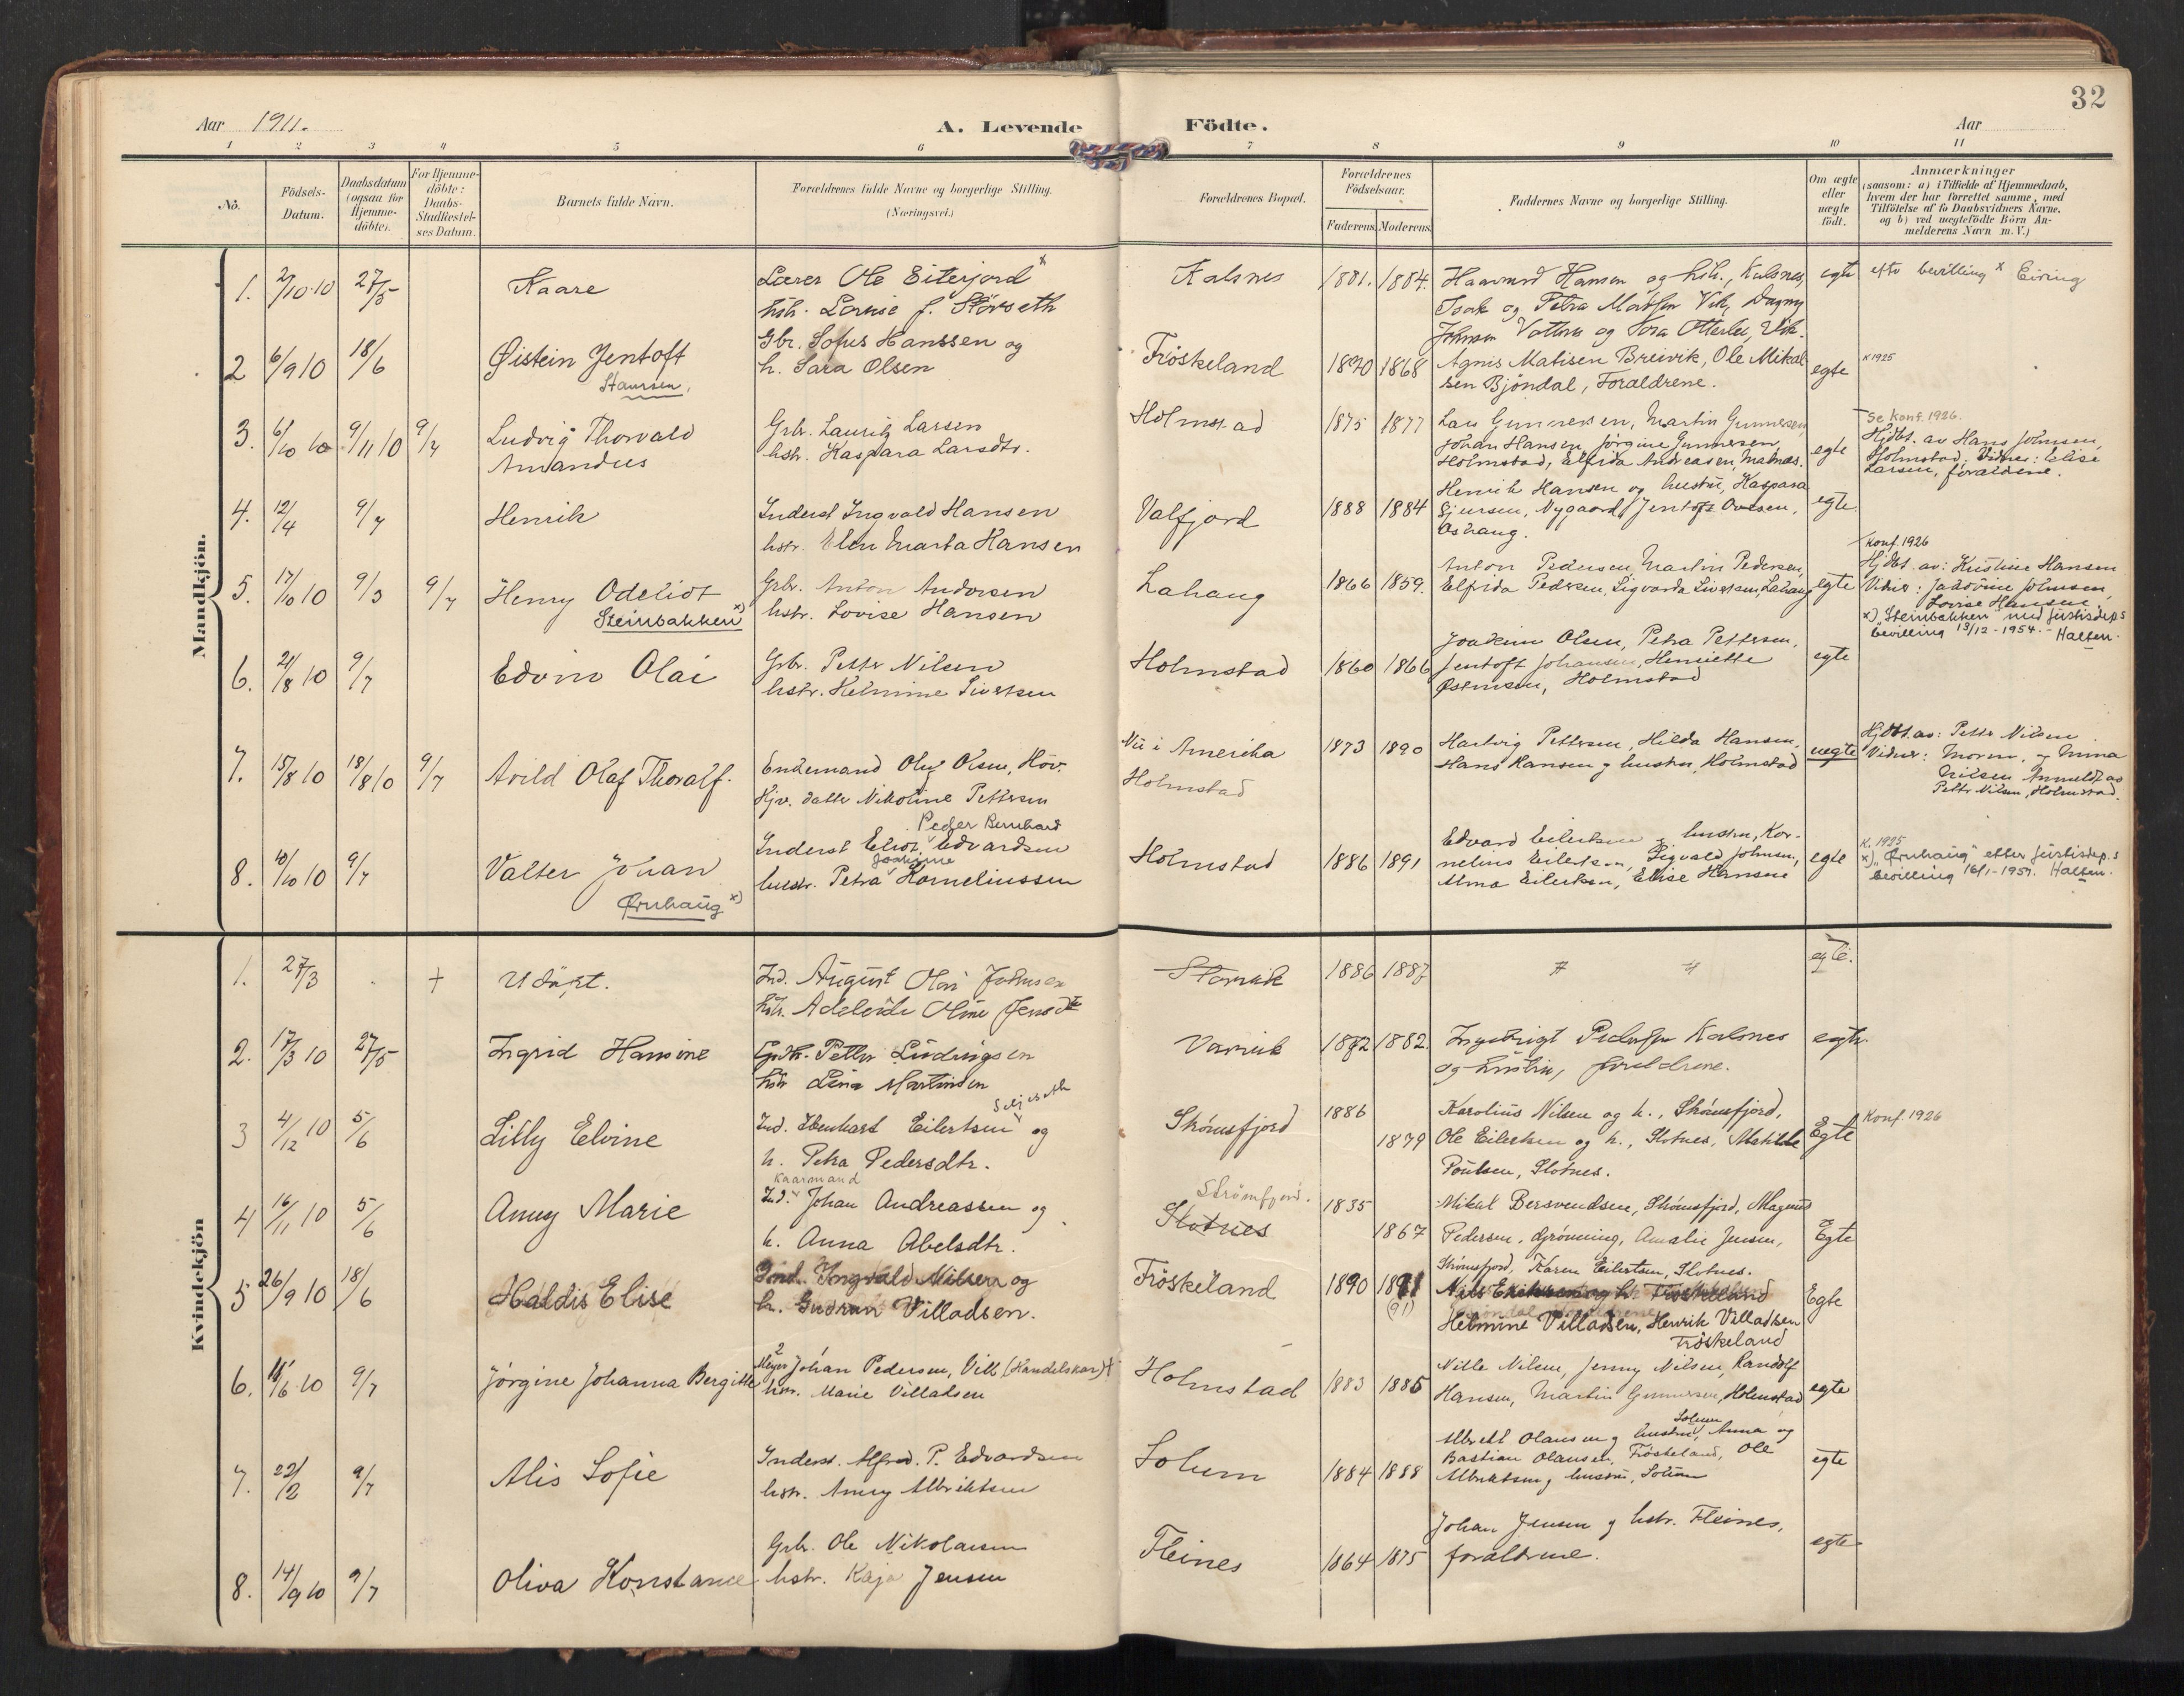 32
Aar 1911.
A. Levende Födte.
Aar
1 2 3 4 5 6 7 8 9 10 11
No.
Födsels-Datum.
Daabsdatum (ogsaa for Hjemme-döbte).
For Hjemme-döbte: Daabs-Stadfæstel-ses Datum.
Barnets fulde Navn.
Forældrenes fulde Navne og borgerlige Stilling.
(Næringsvei.)
Forældrenes Bopæl.
Forældrenes Födselsaar.
Faderens. Moderens.
Faddernes Navne og borgerlige Stilling.
Om ægte eller uægte födt.
Anmærkninger
(saasom: a) i Tilfælde af Hjemmedaab,
hvem der har forrettet samme, med
Tilföielse af to Daabsvidners Navne,
og b) ved uægtefödte Börn An-
melderens Navn m. V.)
Mandkjön.
1. 2/10 10 27/5 Kaare
Lærer Ole Eiterjord x
hstr. Lovise f. Störseth
Kalsnes 1881. 1884.
Haavard Hansen og hstr., Kalsnes,
Isak og Petra Madsen Vik, Dagny
Johnsen Vottnes og Tora Otterlei, Vik.
egte efter bevilling x Eiring
2 6/9 10 18/6 Øistein Jentoft
Staursen,
Gbr. Sofus Hanssen og
h. Sara Olsen
Fröskeland 1870 1868
Agnis Matisen Breivik, Ole Mikal
sen Bjöndal, Foraldrene.
egte K 1925
3. 6/10 10 9/11 10 9/7 Ludvig Thorvald
Amandus
Grbr. Lauritz Larsen
hstr. Kaspara Larsdtr.
Holmstad 1875 1877
Lars Gunnersen, Martin Gunnersen,
Johan Hansen, Jørgine Gunnersen,
Holmstad, Elfrida Andreasen, Malnes.
egte
Se konf. 1926.
Hjdbt. av Hans Johnsen,
Holmstad. Vidner: Elise
Larsen, foraldrene.
4. 12/4 9/7 Henrik
Inderst Ingvald Hansen
hstr. Elen Marta Hansen
Valfjord 1888 1884
Henrik Hansen og hustru, Kaspara
Sjursen, Nygaard, Jentoft Ovesen,
Oshaug.
egte.
5. 17/10 10 9/3 9/7 Henry Odeliot
Steinbakken x)
Grbr. Anton Andorsen
hstr. Lovise Hansen
Lahaug 1866 1859.
Anton Pedersen, Martin Pedersen,
Elfrida Pedersen, Sigvarda Sivertsen, Lahaug
egte
Konf. 1926
Hjdbt. av: Kristine Hansen
Vidner: Jakobine Johnsen,
Lovise Hansen.
x) "Steinbakken" med justisdep.s
bevilling 13/12 - 1954. - Halsen.
6. 21/8 10 9/7 Edvin Olai
Grbr. Petter Nilsen
hstr. Helmine Sivertsen
Holmstad 1860 1866
Joakim Olsen, Petra Pettersen,
Jentoft Johansen, Henriette
Østensen, Holmstad
egte
7. 15/8 10 18/8 10 9/7 Arild Olaf Thoralf.
Enkemand Oluf Olsen, Höv.
Hjv. datter Nikoline Pettersen
Nu i Amerika
Holmstad
1873 1890
Hartvig Pettersen, Hilda Hansen,
Hans Hansen og hustru, Holmstad
uegte
Hjdbt. av: Petter Nilsen
Vidner: Moren, og Mina
Nilsen Anmeldt av
Petter Nilsen, Holmstad.
8. 10/10 10 9/7 Valter Johan
Ørnhaug x)
Peder Bernhard
Inderst Eliot Edvardsen
Joakime
hustr. Petra Korneliussen
Holmstad 1886 1891
Edvard Eilertsen og hustru, Kor-
nelius Eilertsen, Sigvald Johnsen,
Alma Eilertsen, Elise Hansen
egte
K. 1925
x) "Ørnhaug" etter justisdep.s
bevilling 16/1 - 1957. Halsen.
Kvindekjön
1. 27/3 + Udöpt.
Ind. August Olai Johnsen
hstr. Adeleide Oline Jensdtr
1886 1887
" "
egte.
2. 17/3 10 27/5 Ingrid Hansine
Grdbr. Petter Ludvigsen
hstr Lina Martinsen
Varvik 1882 1882.
Ingebrigt Pedersen Kalsnes
og hustru, foreldrene.
egte.
3 4/12 10 5/6 Lilly Elvine
Seljeseth
Ind. Ebenhart Eilertsen og
h. Petra Pedersdtr.
Skömsfjord 1886 1879
Karolius Nilsen og h., Skömsfjord,
Ole Eilertsen og h., Slotnes, Matilde
Poulsen, Slotnes.
Egte Konf. 1926
4 16/11 10 5/6 Anny Marie
Kaarmand
Ind. Johan Andreassen og
h. Anna Abelsdtr.
Strömfjord.
Slotnes
1835 1867
Mikal Bersvendsen, Skömsfjord, Magnus
Pedersen, Grönning, Amalie Jensen,
Skömsfjord, Karen Eilertsen, Slotnes.
Egte
5 26/9 10 18/6 Haldis Elise
Ind. Ingvald Nilsen og
h. Gudrun Villadsen.
Fröskeland 1890 1891
(91)
Nils og h. Fröskeland
Helmine Villadsen, Henrik Villadsen
Fröskeland
Egte
6. 11/6 10 9/7 Jörgine Johanna Bergitte
2
Meyer Johan Pedersen, Vik (Handelskar) +
hstr. Marie Villadsen
Holmstad 1883 1885
Nille Nilsen, Jenny Nilsen, Randolf
Hansen, Martin Gunnersen, Holmstad
egte
7. 22/2 9/7 Alis Sofie
Inderst. Alfred. P. Edvardsen
hstr. Anny Albriktsen
Solum 1884 1888
Solum
Albrikt Olausen og hustru, Anna og
Bastian Olausen, Fröskeland, Ole
Albriktsen og hustru, Solum
egte
8. 14/9 10 9/7 Oliva Konstanse
Grbr. Ole Nikolaisen
hstr. Kaja Jensen
Fleines 1864 1875
Johan Jensen og hstr. Fleines,
foraldrene.
egte